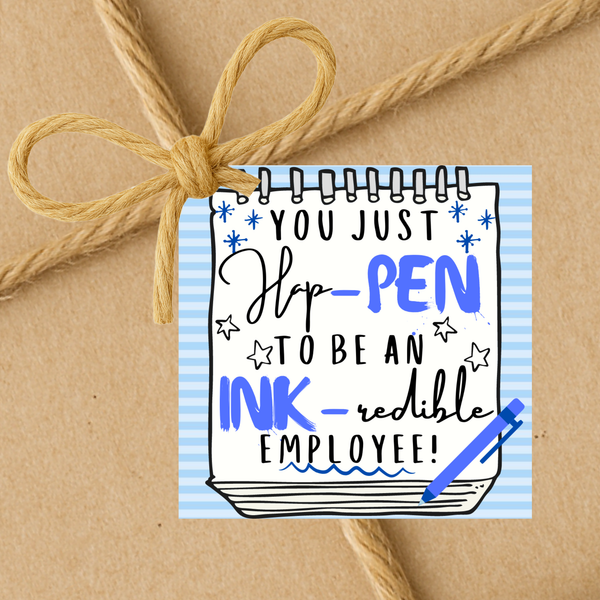 YOU JUST
Hap-PEN
TO BE AN
INK-redible
EMPLOYEE!